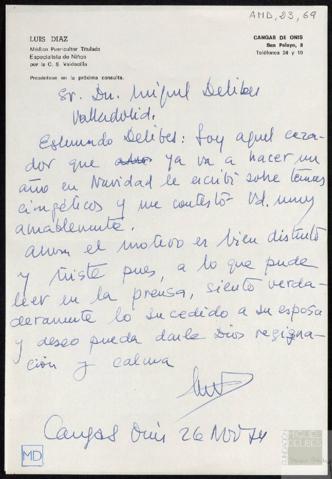 AMD, 23, 69
LUIS DIAZ
Médico Puericultor Titulado
Especialista de Niños
por la C. S. Valdecilla
Preséntese en la próxima consulta.
CANGAS DE ONIS
San Pelayo, 8
Teléfonos 24 y 10
Sr. Dn. Miguel Delibes
Valladolid.
Estimado Delibes: Soy aquel caza-
dor que ya va a hacer un
año en Navidad le escribí sobre temas
cinegéticos y me contestó Vd. muy
amablemente.
Ahora el motivo es bien distinto
y triste pues, a lo que pude
leer en la prensa, siento verda-
deramente lo sucedido a su esposa
y deseo pueda darle Dios resigna-
ción y calma
Cangas Onis 26 Nov 74
MD
FUNDACIÓN
MIGUEL
DELIBES